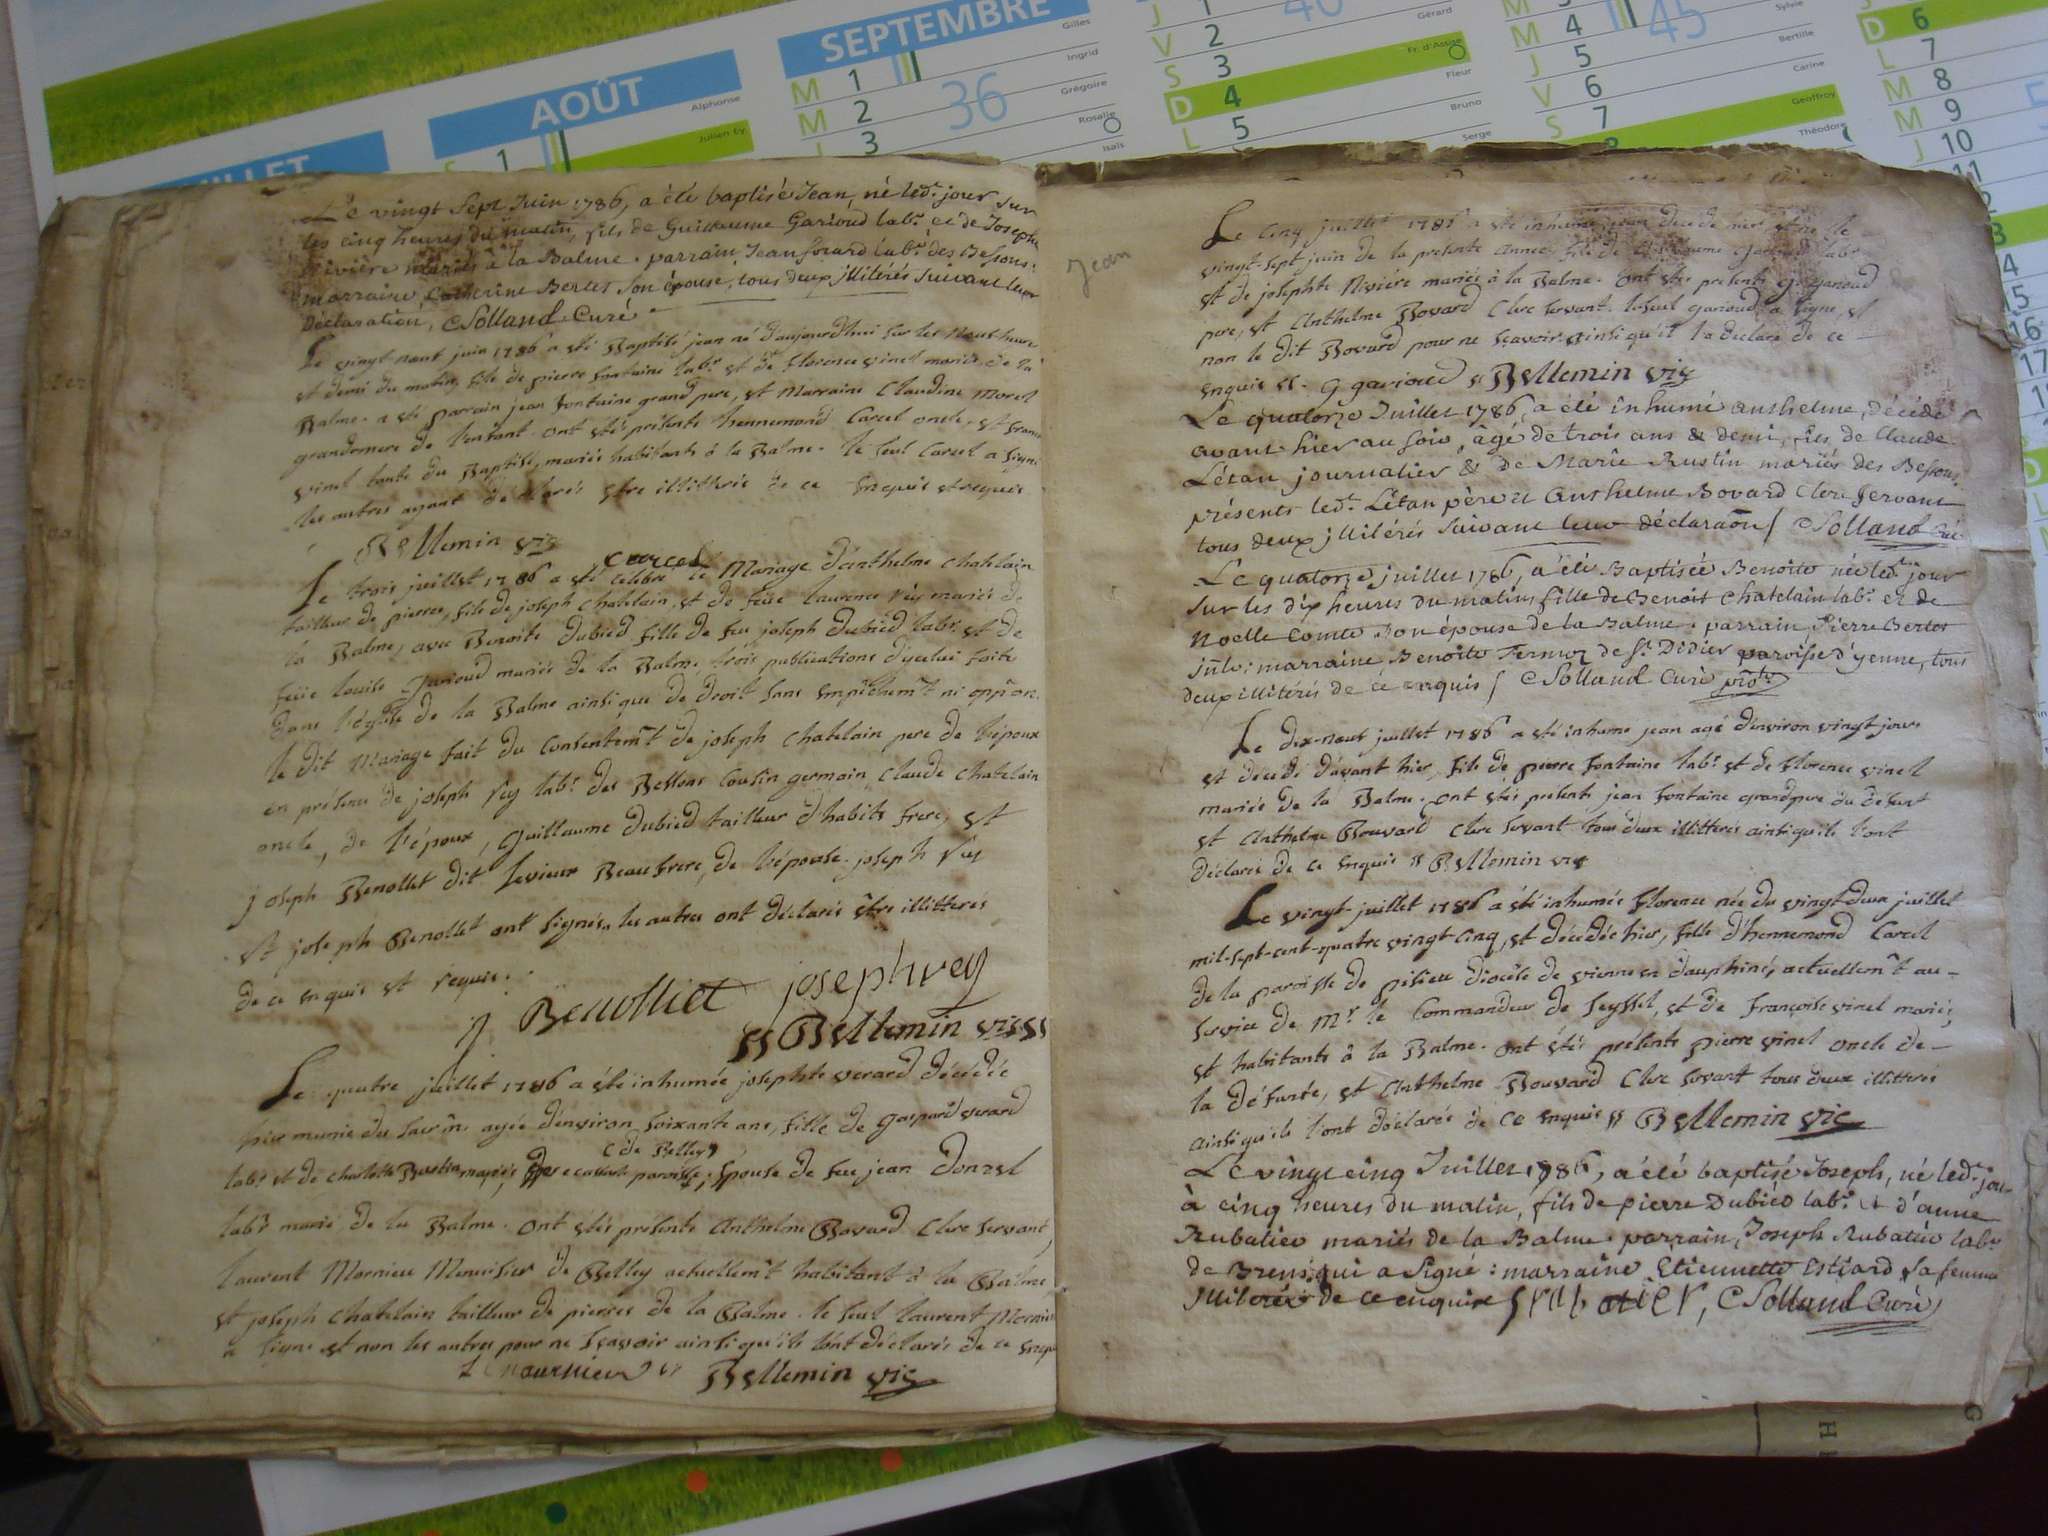 JUILLET
AOÛT
Alphonse
S 1 Julien Ey.
SEPTEMBRE
M 1 Gilles
M 2 Ingrid
J 3 Grégoire
Rosalie
Isaïs
36
J 1 40
V 2 Gérard
S 3 Fr. d'Assise
D 4 Fleur
L 5 Bruno
Serge
M 3
M 4 45 Sylvie
J 5 Bertille
V 6 Carine
S 7 Geoffroy
8 Théodore
D 6
L 7
M 8
M 9
J 10
11
Le vingt sept Juin 1786, a été baptisé Jean, né led.t jour sur
les cinq heures du matin, fils de Guillaume Garioud lab.r et de Josephe
Rivière mariés à la Balme. parrain, Jean forard lab.r des Bessons:
marraine, Catherine Berter son épouse, tous deux illitérés suivant leur
Déclaration, CSolland Curé
Le vingt neuf juin 1786 a été Baptisé jean né d'aujourdhui sur les neuf heure
et demi du matin, fils de pierre fontaine lab.r et de florence vinel mariés de la
Balme. a été parrain jean fontaine grand pere, et Marraine Claudine Morel
grandmere de l'enfant. ont étés présents hennemond Carcel oncle, et fran
vinel tante du Baptisé, mariés habitants à la Balme. le seul Carcel a signé
les autres ayant déclarés être illitterés de ce enquis et requis
Bellemin vic
carcel
Le trois juillet 1786 a été celebré le Mariage d'anthelme chatelain
tailleur de pierres, fils de joseph chatelain, et de feüe laurence Vey mariés de
la Balme, avec Benoite Dubied fille de feu joseph dubied lab.r et de
feüe louise Garioud mariés de la Balme. trois publications d'ycelui faite
dans l'église de la Balme ainsi que de droit sans empêchem̃t ni opp̃on.
le dit Mariage fait du Consentem̃t de joseph chatelain pere de l'époux
en présence de joseph Vey lab.r des Bessons Cousin germain, Claude chatelain
oncle, de l'époux, Guillaume dubied tailleur d'habits frere, et
joseph Benollet dit levieux Beaufrere, de l'épouse. joseph Vey
et joseph Benollet ont signés, les autres ont déclarés être illitterés
de ce enquis et requis.
j Benolliet josephvey
Bellemin vic
Le quatre juillet 1786 a été inhumée josephte verard décédée
hier munie du sacrm̃. agée d'environ soixante ans, fille de gaspard verard
c de Belley
lab.r et de charlotte Bustin mariés, paroisse; épouse de feu jean donzel
lab.r marié de la Balme. ont étés présents anthelme Bovard Clerc servant,
laurent Mornieu Menuisier de Belley actuellem̃t habitant à la Balme
et joseph chatelain tailleur de pierres de la Balme. le seul laurent Mornieu
a signé et non les autres pour ne sçavoir ainsi qu'ils l'ont déclarés de ce enquis
Bellemin vic
Jean
Le cinq juillet 1786 a été inhumé jean décédé hier, et né le
vingt-sept juin de la présente année, fils de Guillaume Garioud lab.r
et de josephte Rivière mariés à la Balme. ont étés présents G. Garioud
pere, et Anthelme Bovard Clerc servant. le seul garioud a signé, et
non le dit Bovard pour ne sçavoir ainsi qu'il l'a déclaré de ce
enquis. G garioud Bellemin vic
Le quatorze Juillet 1786, a été inhumé anthelme, décédé
avant hier au soir, âgé de trois ans & demi, fils de Claude
Létan journalier & de Marie Rustin mariés des Bessons.
présents led.t Létan père et Anthelme Bovard Clerc servant
tous deux illitérés suivant leur déclaraõn / CSolland Curé
Le quatorze juillet 1786, a été Baptisée Benoite née led.t jour
sur les dix heures du matin, fille de Benoit Chatelain lab.r et de
Noelle Comte son épouse de la Balme. parrain, Pierre Berter
marraine Benoite de St. Didier paroisse d'yenne, tous
deux illitérés de ce enquis / CSolland Curé
Le dix-neuf juillet 1786 a été inhumé jean agé d'environ vingt jours
et décédé d'avant hier, fils de pierre fontaine lab.r et de florence vinel
mariés de la Balme. ont étés présents jean fontaine grandpere du défunt
et Anthelme Bouvard Clerc servant tous deux illitterés ainsi qu'ils l'ont
déclarés de ce enquis Bellemin vic
Le vingt juillet 1786 a été inhumée florence née du vingt deux juillet
mil-sept-cent-quatre vingt-cinq, et décédée hier, fille d'hennemond Carcel
de la paroisse de pisieu diocèse de vienne en dauphiné, actuellem̃t au-
service de M.r le Commandeur de Seyssel, et de françoise vinel mariés,
et habitants à la Balme. ont étés présents pierre vinel oncle de-
la défunte, et Anthelme Bouvard Clerc servant tous deux illitterés
ainsi qu'ils l'ont déclarés de ce enquis Bellemin vic
Le vingt cinq Juillet 1786, a été baptisé Joseph, né led.t jour
à cinq heures du matin, fils de pierre Dubiéd lab.r & d'anne
Rubatier mariés de la Balme. parrain, Joseph Rubatier lab.r
de Brens qui a signé: marraine, Etiennette Estiard sa femme
illitérée de ce enquise CSolland Curé